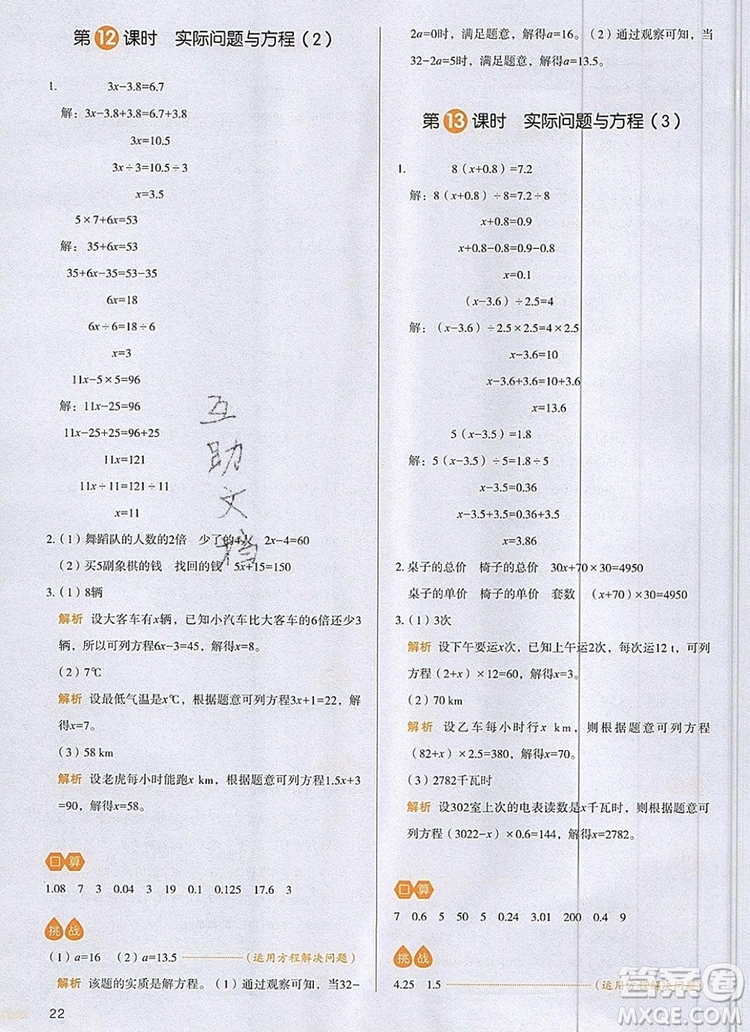 第12课时 实际问题与方程（2）
1. 3x-3.8=6.7
解：3x-3.8+3.8=6.7+3.8
3x=10.5
3x÷3=10.5÷3
x=3.5
5×7+6x=53
解：35+6x=53
35+6x-35=53-35
6x=18
6x÷6=18÷6
x=3
11x-5×5=96
解：11x-25=96
11x-25+25=96+25
11x=121
11x÷11=121÷11
x=11
2.（1）舞蹈队的人数的2倍 少了的4人 2x-4=60
（2）买5副象棋的钱 找回的钱 5x+15=150
3.（1）8辆
解析 设大客车有x辆，已知小汽车比大客车的6倍还少3
辆，所以可列方程6x-3=45，解得x=8。
（2）7℃
解析 设最低气温是x℃，根据题意可列方程3x+1=22，解
得x=7。
（3）58 km
解析 设老虎每小时能跑x km，根据题意可列方程1.5x+3
=90，解得x=58。
口算
1.08 7 3 0.04 3 19 0.1 0.125 17.6 3
挑战
（1）a=16 （2）a=13.5（运用方程解决问题）
解析 该题的实质是解方程。（1）通过观察可知，当32-
22
2a=0时，满足题意，解得a=16。（2）通过观察可知，当
32-2a=5时，满足题意，解得a=13.5。
第13课时 实际问题与方程（3）
1. 8（x+0.8）=7.2
解：8（x+0.8）÷8=7.2÷8
x+0.8=0.9
x+0.8-0.8=0.9-0.8
x=0.1
（x-3.6）÷2.5=4
解：（x-3.6）÷2.5×2.5=4×2.5
x-3.6=10
x-3.6+3.6=10+3.6
x=13.6
5（x-3.5）=1.8
解：5（x-3.5）÷5=1.8÷5
x-3.5=0.36
x-3.5+3.5=0.36+3.5
x=3.86
2. 桌子的总价 椅子的总价 30x+70×30=4950
桌子的单价 椅子的单价 套数 （x+70）×30=4950
3.（1）3次
解析 设下午要运x次，已知上午运2次，每次运12 t，可列
方程（2+x）×12=60，解得x=3。
（2）70 km
解析 设乙车每小时行x km，则根据题意可列方程
（82+x）×2.5=380，解得x=70。
（3）2782千瓦时
解析 设302室上次的电表读数是x千瓦时，则根据题意可
列方程（3022-x）×0.6=144，解得x=2782。
口算
7 0.6 5 50 5 0.24 3.01 200 0.4 9
挑战
4.25 1.5（运用方程解决问题）
互
助
文
档
答案圈
MXQE.COM